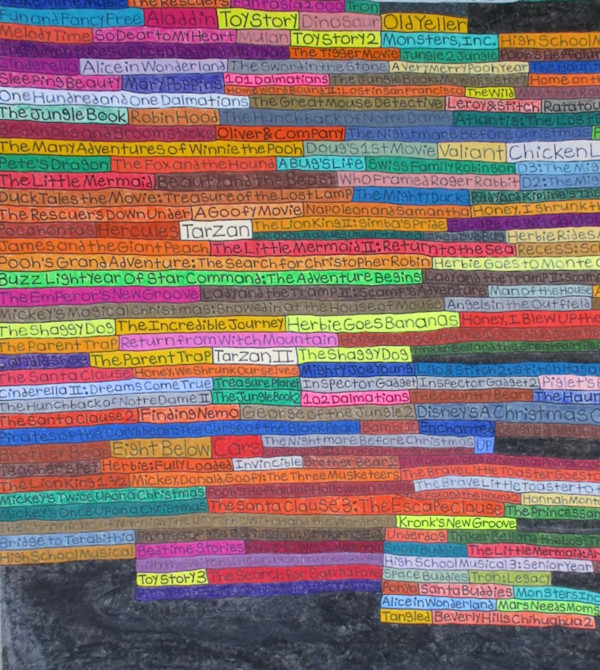 The Rescuers Fantasia 2000 Tron
Fun and Fancy Free Aladdin Toy Story Dinosaur Old Yeller
Melody Time So Dear to My Heart Mulan Toy Story 2 Monsters, Inc. High School M
The Tigger Movie Jungle 2 Jungle
Cinderella Alice in Wonderland The Sword in the Stone A Very Merry Pooh Year
Sleeping Beauty Mary Poppins 101 Dalmatians The Jungle Home on the
Homeward Bound II: Lost in San Francisco The Wild
One Hundred and One Dalmatians The Great Mouse Detective Leroy & Stitch Ratatou
The Jungle Book Robin Hood The Hunchback of Notre Dame Atlantis: The Lost
Bedknobs and Broomsticks Oliver & Company The Nightmare Before Christmas
The Many Adventures of Winnie the Pooh Doug's 1st Movie Valiant Chicken L
Pete's Dragon The Fox and the Hound A Bug's Life Swiss Family Robinson D3: The Mig
The Little Mermaid Beauty and the Beast Who Framed Roger Rabbit D2: The Mig
DuckTales the Movie: Treasure of the Lost Lamp The Mighty Ducks Rudyard Kipling's The
The Rescuers Down Under A Goofy Movie Napoleon and Samantha Honey, I Shrunk th
Pocahontas Hercules Tarzan The Lion King II: Simba's Pride Herbie Rides A
James and the Giant Peach The Little Mermaid II: Return to the Sea Recess: Sc
Pooh's Grand Adventure: The Search for Christopher Robin Herbie Goes to Monte C
Buzz Lightyear of Star Command: The Adventure Begins
The Emperor's New Groove Lady and the Tramp II: Scamp's Adventure Man of the House
Mickey's Magical Christmas: Snowed in at the House of Mouse Angels in the Outfield
The Shaggy Dog The Incredible Journey Herbie Goes Bananas Honey, I Blew Up the
The Parent Trap Return from Witch Mountain
The Parent Trap Tarzan II The Shaggy Dog
The Santa Clause Honey, We Shrunk Ourselves Mighty Joe Young Lilo & Stitch 2: Stitch
Cinderella II: Dreams Come True Treasure Planet Inspector Gadget Inspector Gadget 2 Piglet's B
The Hunchback of Notre Dame II The Jungle Book 2 102 Dalmatians The Country Bears The Haun
The Santa Clause 2 Finding Nemo George of the Jungle 2 Disney's A Christmas C
Pirates of the Caribbean: The Curse of the Black Pearl Bambi II Enchanted
Brother Bear Eight Below Cars The Nightmare Before Christmas Up
Teacher's Pet Herbie: Fully Loaded Invincible Brother Bear 2
The Lion King 1 1/2 Mickey, Donald, Goofy: The Three Musketeers The Brave Little Toaster Goes t
Mickey's Twice Upon a Christmas Pooh's Heffalump Halloween The Brave Little Toaster to
The Fox and the Hound 2 Hannah Mon
Mickey's Once Upon a Christmas The Santa Clause 3: The Escape Clause The Princess
Kronk's New Groove
Bridge to Terabithia Underdog Tinker Bell
High School Musical Bedtime Stories Snow Buddies The Little Mermaid: Ari
High School Musical 3: Senior Year
Toy Story 3 The Search for Santa Paws Space Buddies Tron: Legacy
Ponyo Santa Buddies Monsters Inc
Alice in Wonderland Mars Needs Moms
Tangled Beverly Hills Chihuahua 2